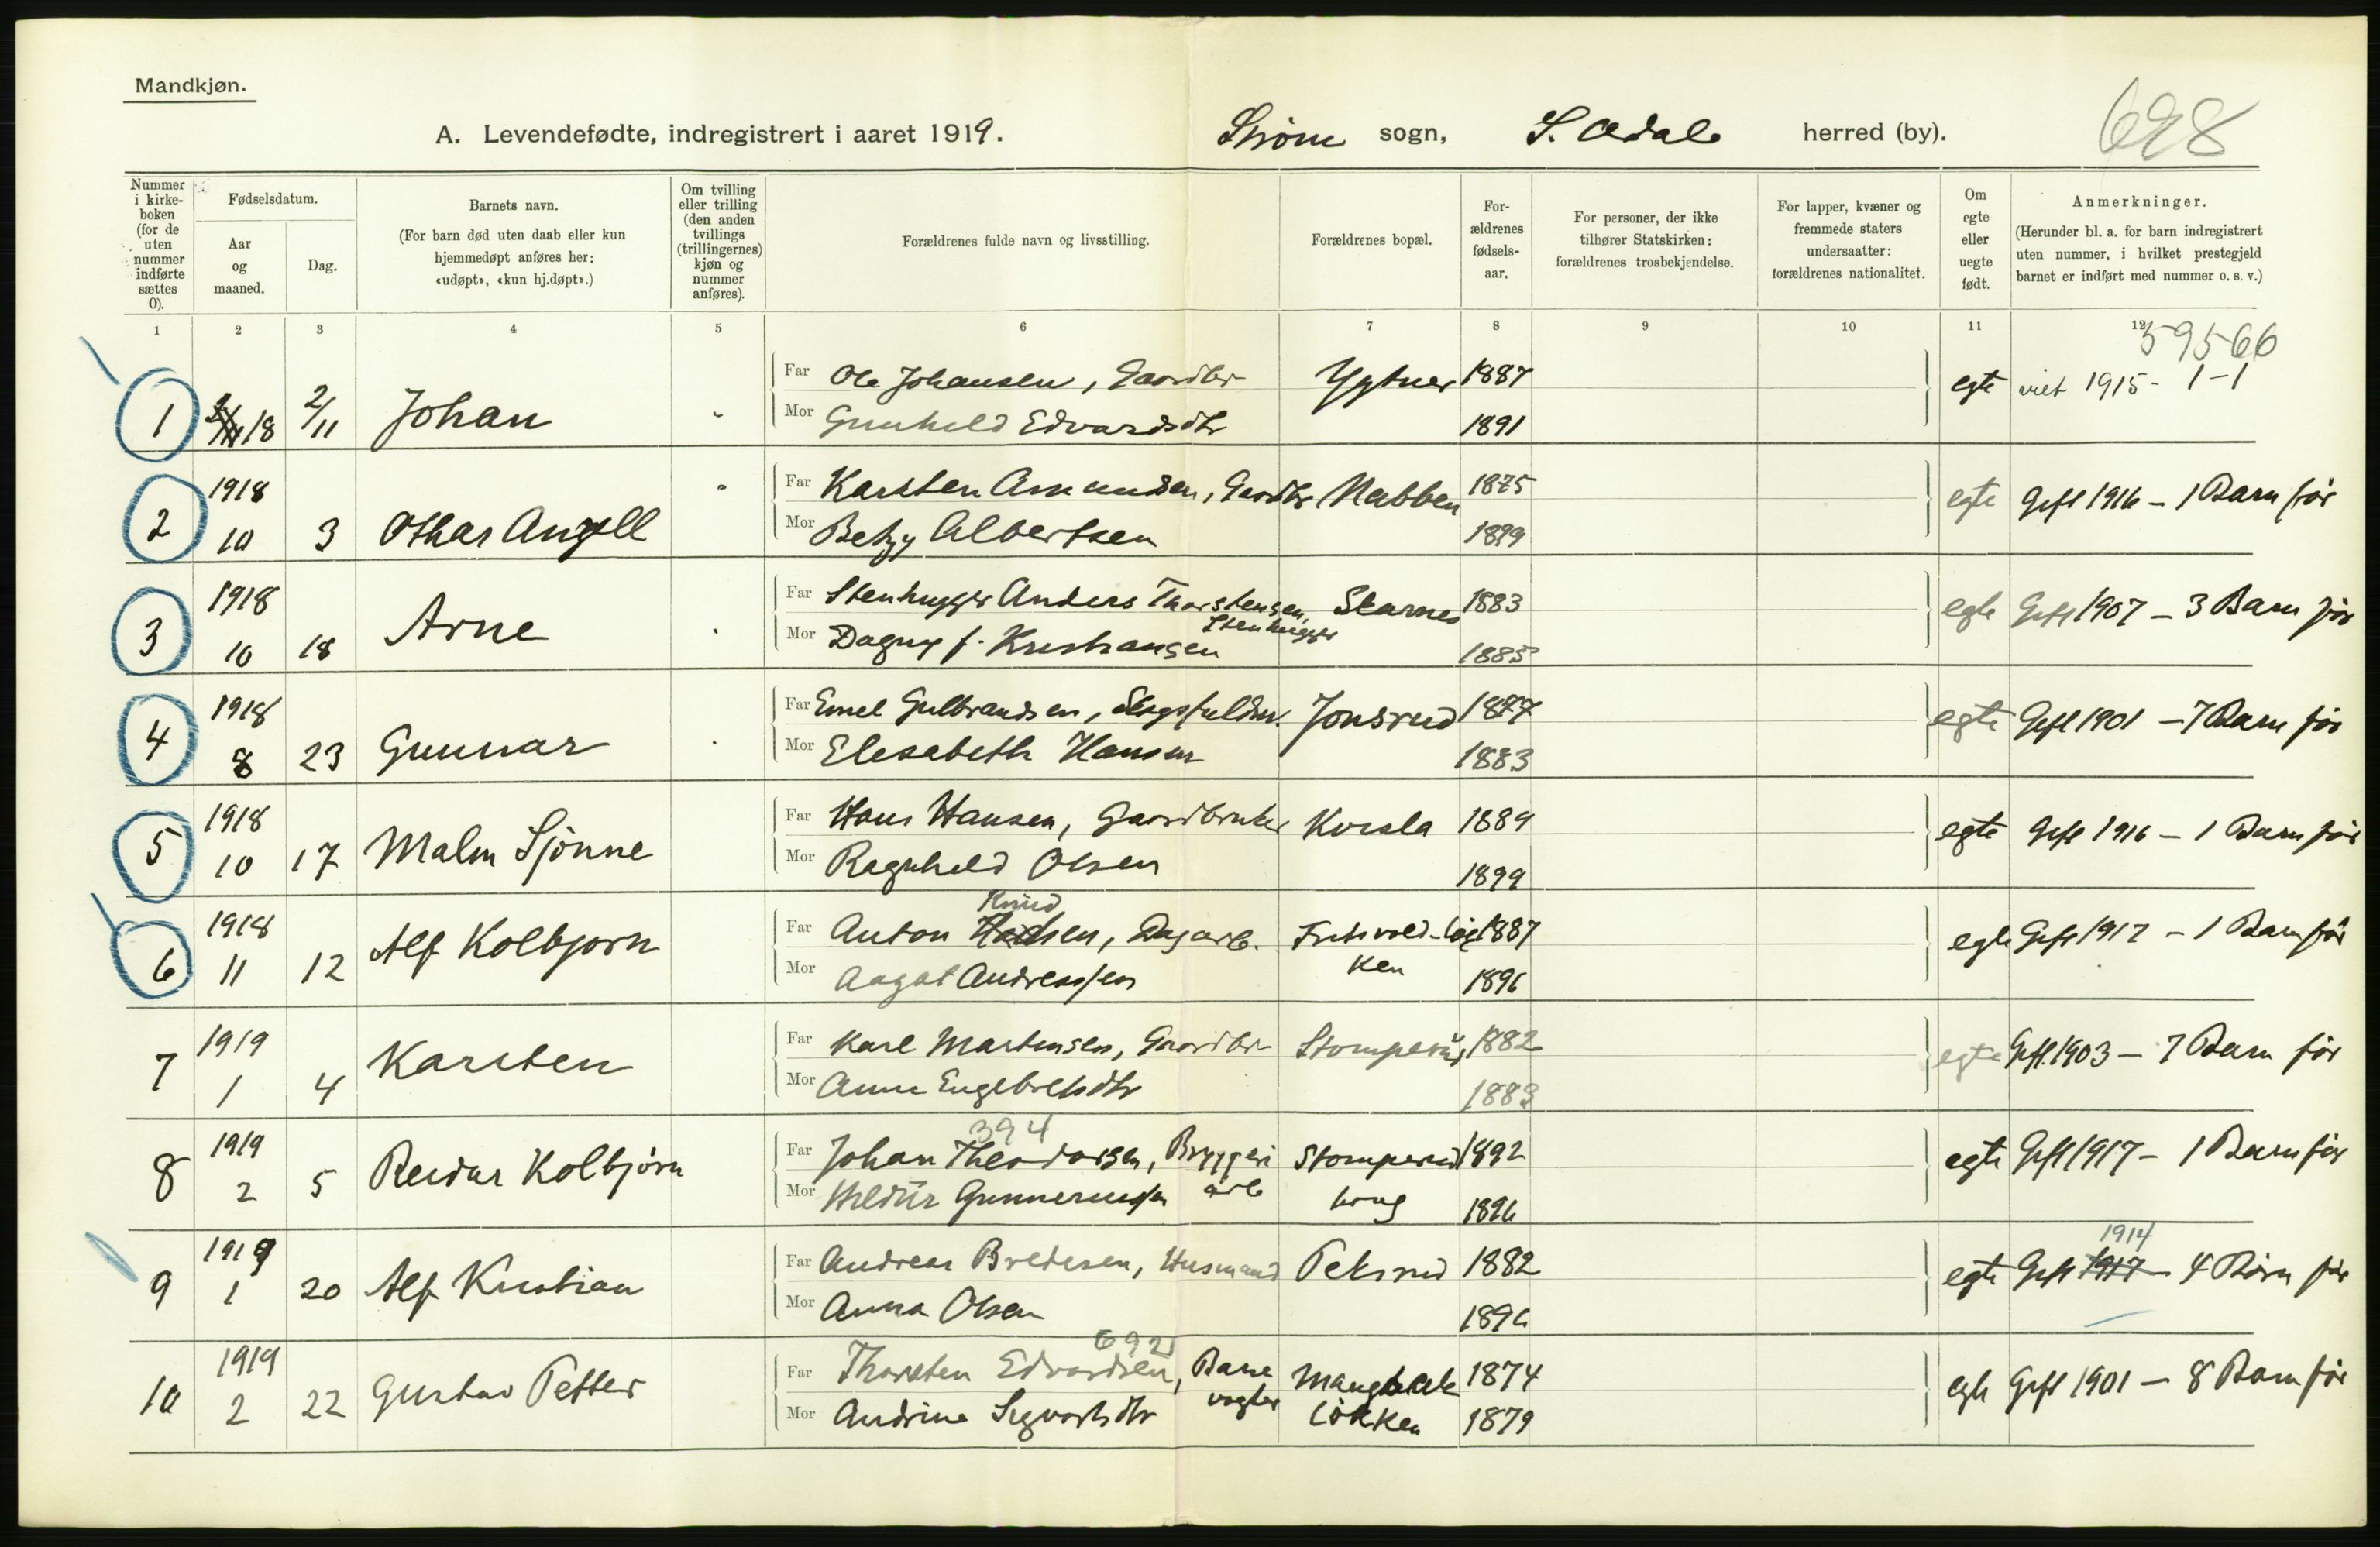 Mandkjøn.
A. Levendefødte, indregistrert i aaret 1919.
Strøm sogn, S. Odale herred (by).
698
Nummer i kirke-boken (for de uten nummer indførte sættes 0).
Fødselsdatum.
Aar og maaned.
Dag.
Barnets navn.
(For barn død uten daab eller kun hjemmedøpt anføres her: «udøpt», «kun hj.døpt».)
Om tvilling eller trilling (den anden tvillings (trillingernes) kjøn og nummer anføres).
Forældrenes fulde navn og livsstilling.
Forældrenes bopæl.
For-ældrenes fødsels-aar.
For personer, der ikke tilhører Statskirken: forældrenes trosbekjendelse.
For lapper, kvæner og fremmede staters undersaatter: forældrenes nationalitet.
Om egte eller uegte født.
Anmerkninger.
(Herunder bl. a. for barn indregistrert uten nummer, i hvilket prestegjeld barnet er indført med nummer o. s. v.)
1 2 3 4 5 6 7 8 9 10 11 12
59566
1 18 2/11 Johan
Far Ole Johansen, Gaardbr 1887 egte viet 1915 - 1 - 1
Mor Gunhild Edvardsdtr 1891
2 1918 10 3 Othar Angell
Far Karsten Amundsen, Gardbr Nabben 1875 egte Gift 1916 - 1 Barn før
Mor Betzy Albertsen 1899
3 1918 10 18 Arne
Far Stenhugger Anders Thorstensen, Stenhugger Skarnes 1883 egte Gift 1907 - 3 Barn før
Mor Dagny f. Kristiansen 1885
4 1918 8 23 Gunnar
Far Emil Gulbrandsen, Jonsrud 1877 egte Gift 1901 - 7 Barn før
Mor Elisabeth Hansen 1883
5 1918 10 17 Malm Sjønne
Far Hans Hansen, Gaardbruker Kvesla 1889 egte Gift 1916 - 1 Barn før
Mor Ragnhild Olsen 1899
6 1918 11 12 Alf Kolbjørn
Knud
Far Anton Dagarb. 1887 egte Gift 1917 - 1 Barn før
Mor Aagot Andreassen 1896
7 1919 1 4 Karsten
Far Karl Martinsen, Gaardbr Stomperud 1882 egte Gift 1903 - 7 Barn før
Mor Anne Engebretsdtr 1883
394
8 1919 2 5 Reidar Kolbjørn
Far Johan Theodorsen, Bryggeri arb Stomperud 1892 egte Gift 1917 - 1 Barn før
Mor Hildur Gunnerussen 1896
9 1919 1 20 Alf Kristian
Far Andreas Bredesen, Husmand Peksrud 1882 egte Gift 1917 1914 - 4 Børn før
Mor Anna Olsen 1896
692
10 1919 2 22 Gustav Petter
Far Thorsten Edvardsen, Bane vogter løkken 1874 egte Gift 1901 - 8 Barn før
Mor Andrine Sigvartsdtr 1879